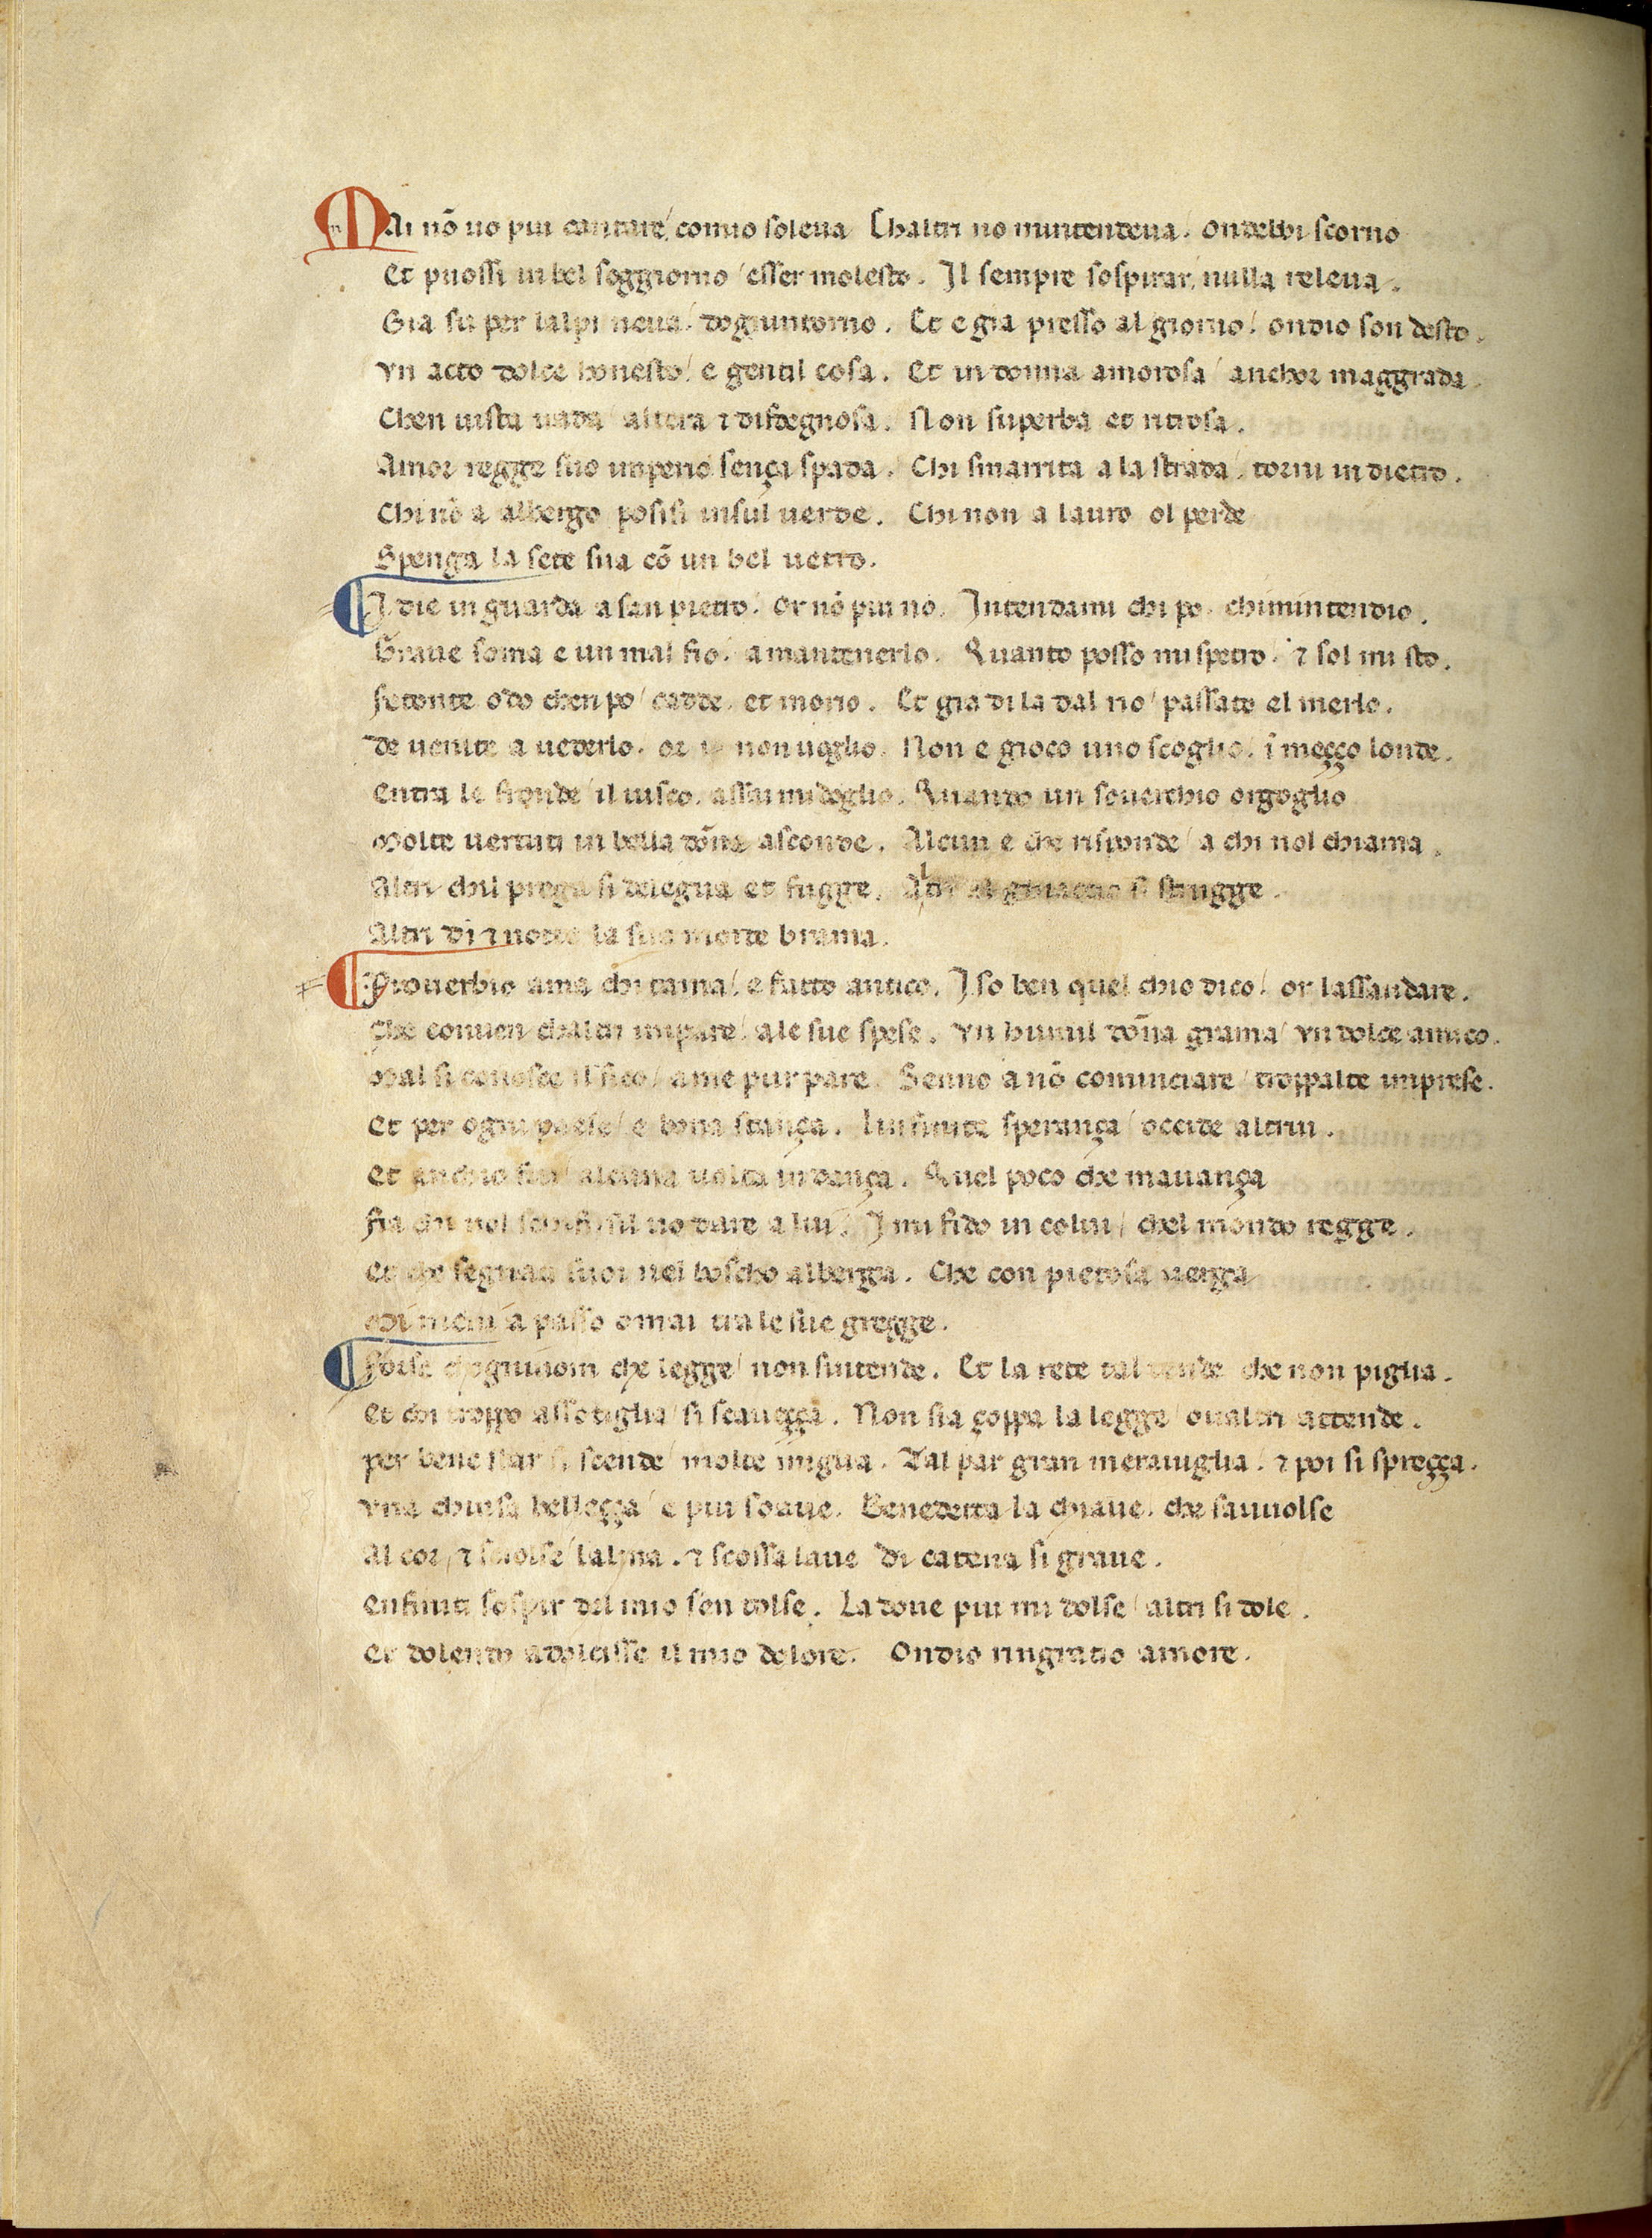 MAi nõ uo piu cantare, comio soleua Chaltri no mintendeua. ondebbi scorno
Et puossi in bel soggiorno / esser molesto. Il sempre sospirar, nulla releua.
Gia su per lalpi neua / dogiuntorno. Et e gia presso al giorno / ondio son desto.
Vn acto dolce honesto / e gentil cosa. Et in donna amorosa / anchor maggrada.
Chen uista uada altera ⁊ disdegnosa. Non superba et ritrosa.
Amor regge suo imperio sença spada. Chi smarrita a la strada / torni indietro.
Chi nõ a albergo posisi insul uerde. Chi non a lauro ol perde
Spenga la sete sua cõ un bel uetro.
I die in guarda a san pietro / or nõ piu nò. Intendami chi po. chimintendio.
Graue soma e un mal fio / a mantenerlo. Quanto posso mi spetro / ⁊ sol mi sto.
fetonte odo chen po / cadde. et morio. Et gia di la dal rio / passato el merlo.
de uenite a uederlo. or i non uoglio. Non e gioco uno scoglio / ĩ meçço londe.
Entra le fronde il uisco. assai mi doglio. Quando un souerchio orgoglio
Molte uertuti in bella dõna asconde. Alcun e che risponde / a chi nol chiama.
Altri chil prega si delegua et fugge. Altri al ghiaccio si strugge.
Altri dì ⁊ nocte la sua morte brama.
Prouerbio ama chi tama / e fatto antico. I so ben quel chio dico / or lassandare.
Che conuen chaltri impare / ale sue spese. Vn humil dõna grama / vn dolce amico.
Mal si conosce il fico / a me pur pare. Senno a nõ cominciare / troppalte imprese.
Et per ogni paese / e bona stança. Linfinita sperança / occide altrui.
Et anchio fui / alcuna uolta in dança. Quel poco che mauança
fia chi nol schifi. sil uo dare a lui. I mi fido in colui / chel mondo regge.
Et che seguaci suoi nel boscho alberga. Che con pietosa uerga
Mi meni a passo omai tra le sue gregge.
Forse chogniuom che legge / non sintende. Et la rete tal tende che non piglia.
Et chi troppo assotiglia / si scaueçça. Non sia çoppa la legge / oualtri attende.
per bene star si scende / molte miglia. Tal par gran merauiglia / ⁊ poi si spreçça.
Vna chiusa belleçça / e piu soaue. Benedetta la chiaue. che sauuolse
Al cor / ⁊ sciolse lalma. ⁊ scossa laue di catena si graue.
Enfiniti sospir del mio sen tolse. La doue piu mi dolse / altri si dole.
Et dolendo adolcisse il mio dolore. Ondio ringratio amore.